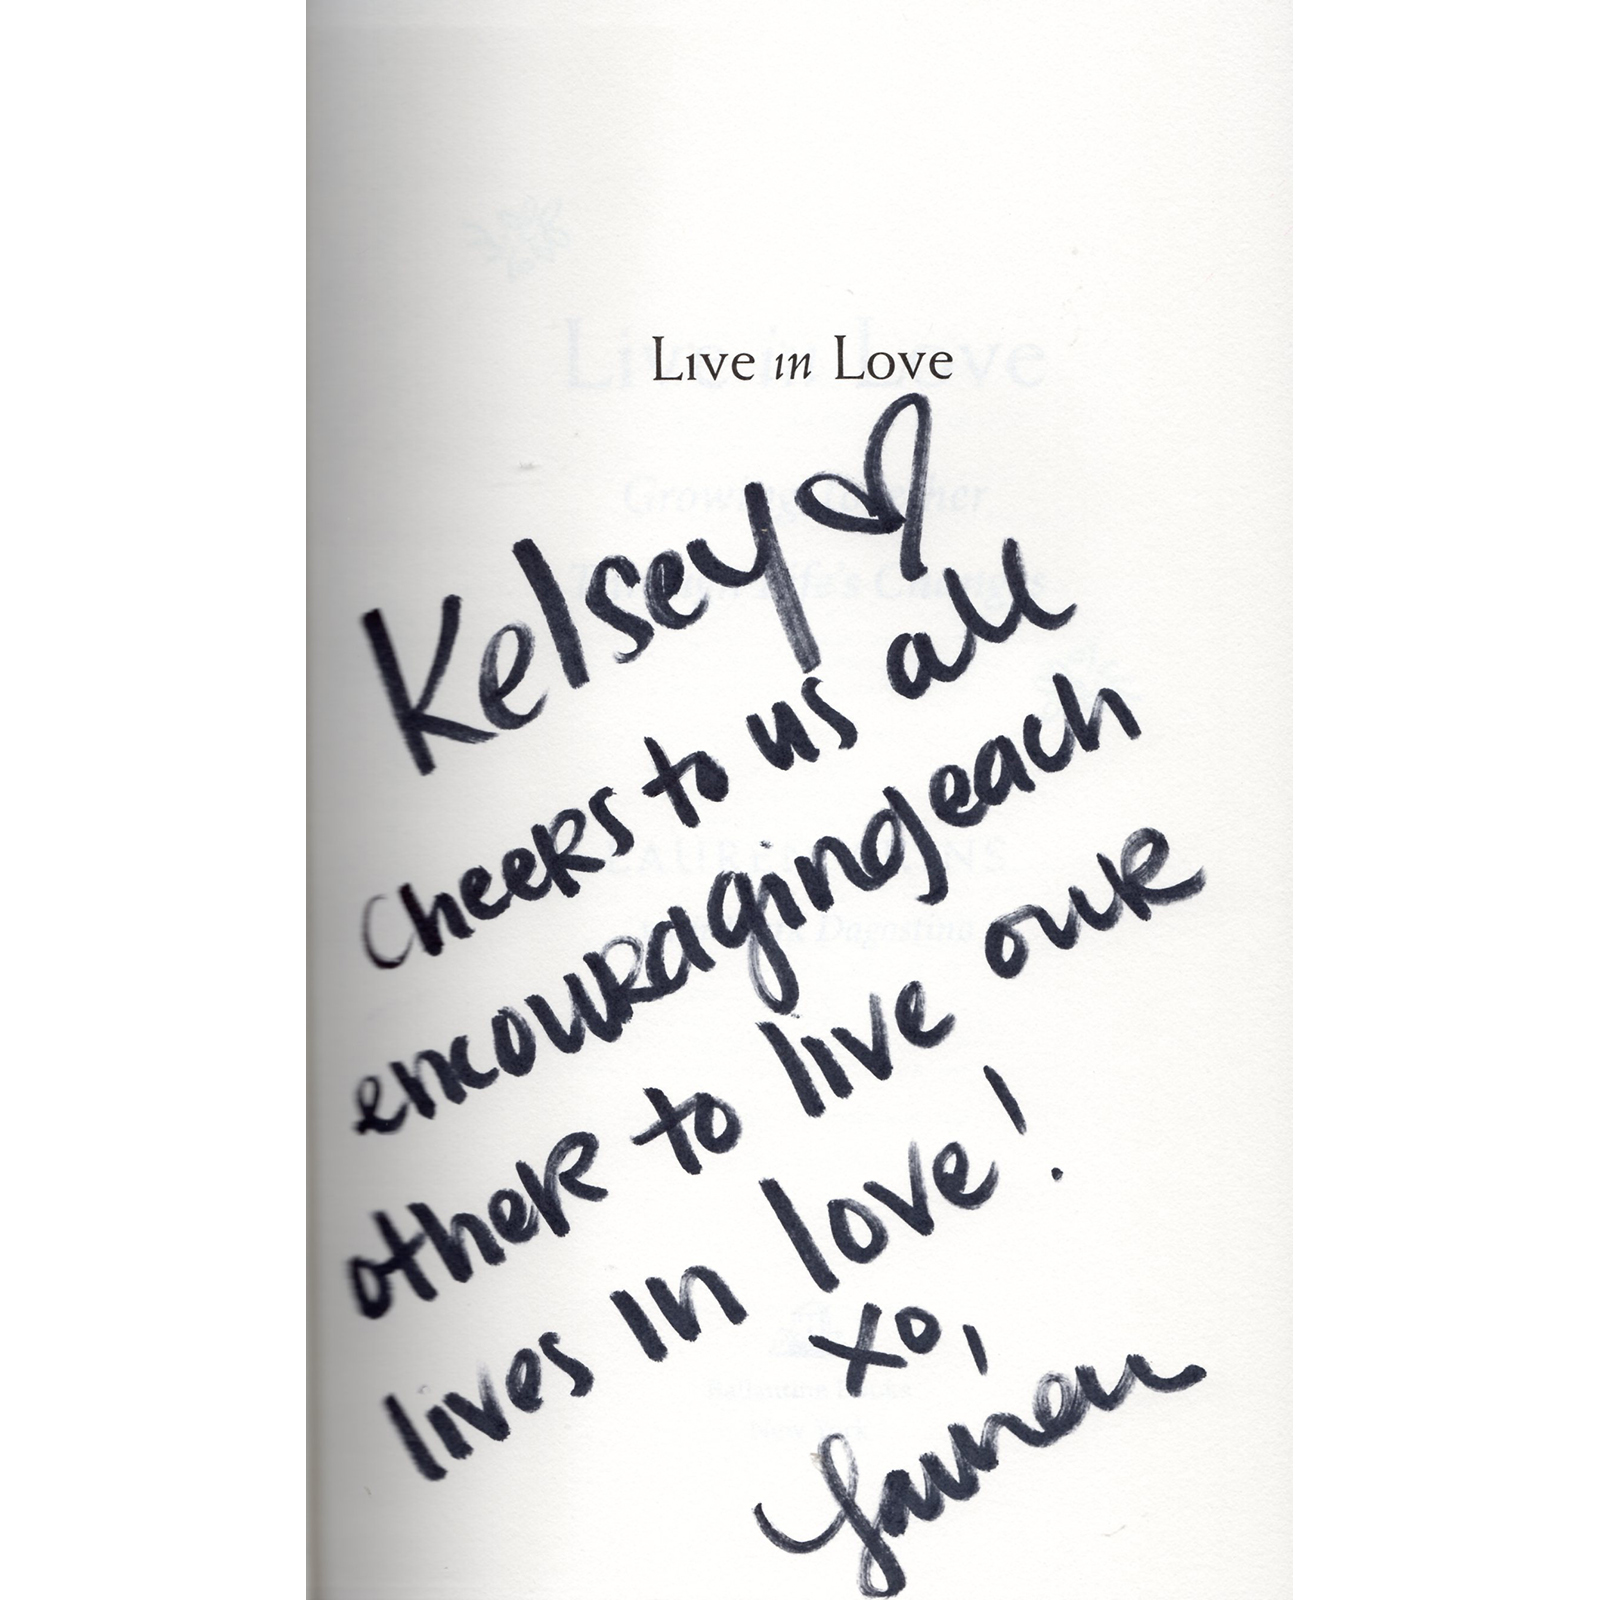 Live in Love
Kelsey
cheers to us all
encouraging each
other to live our
lives in love!
xo,
Lauren